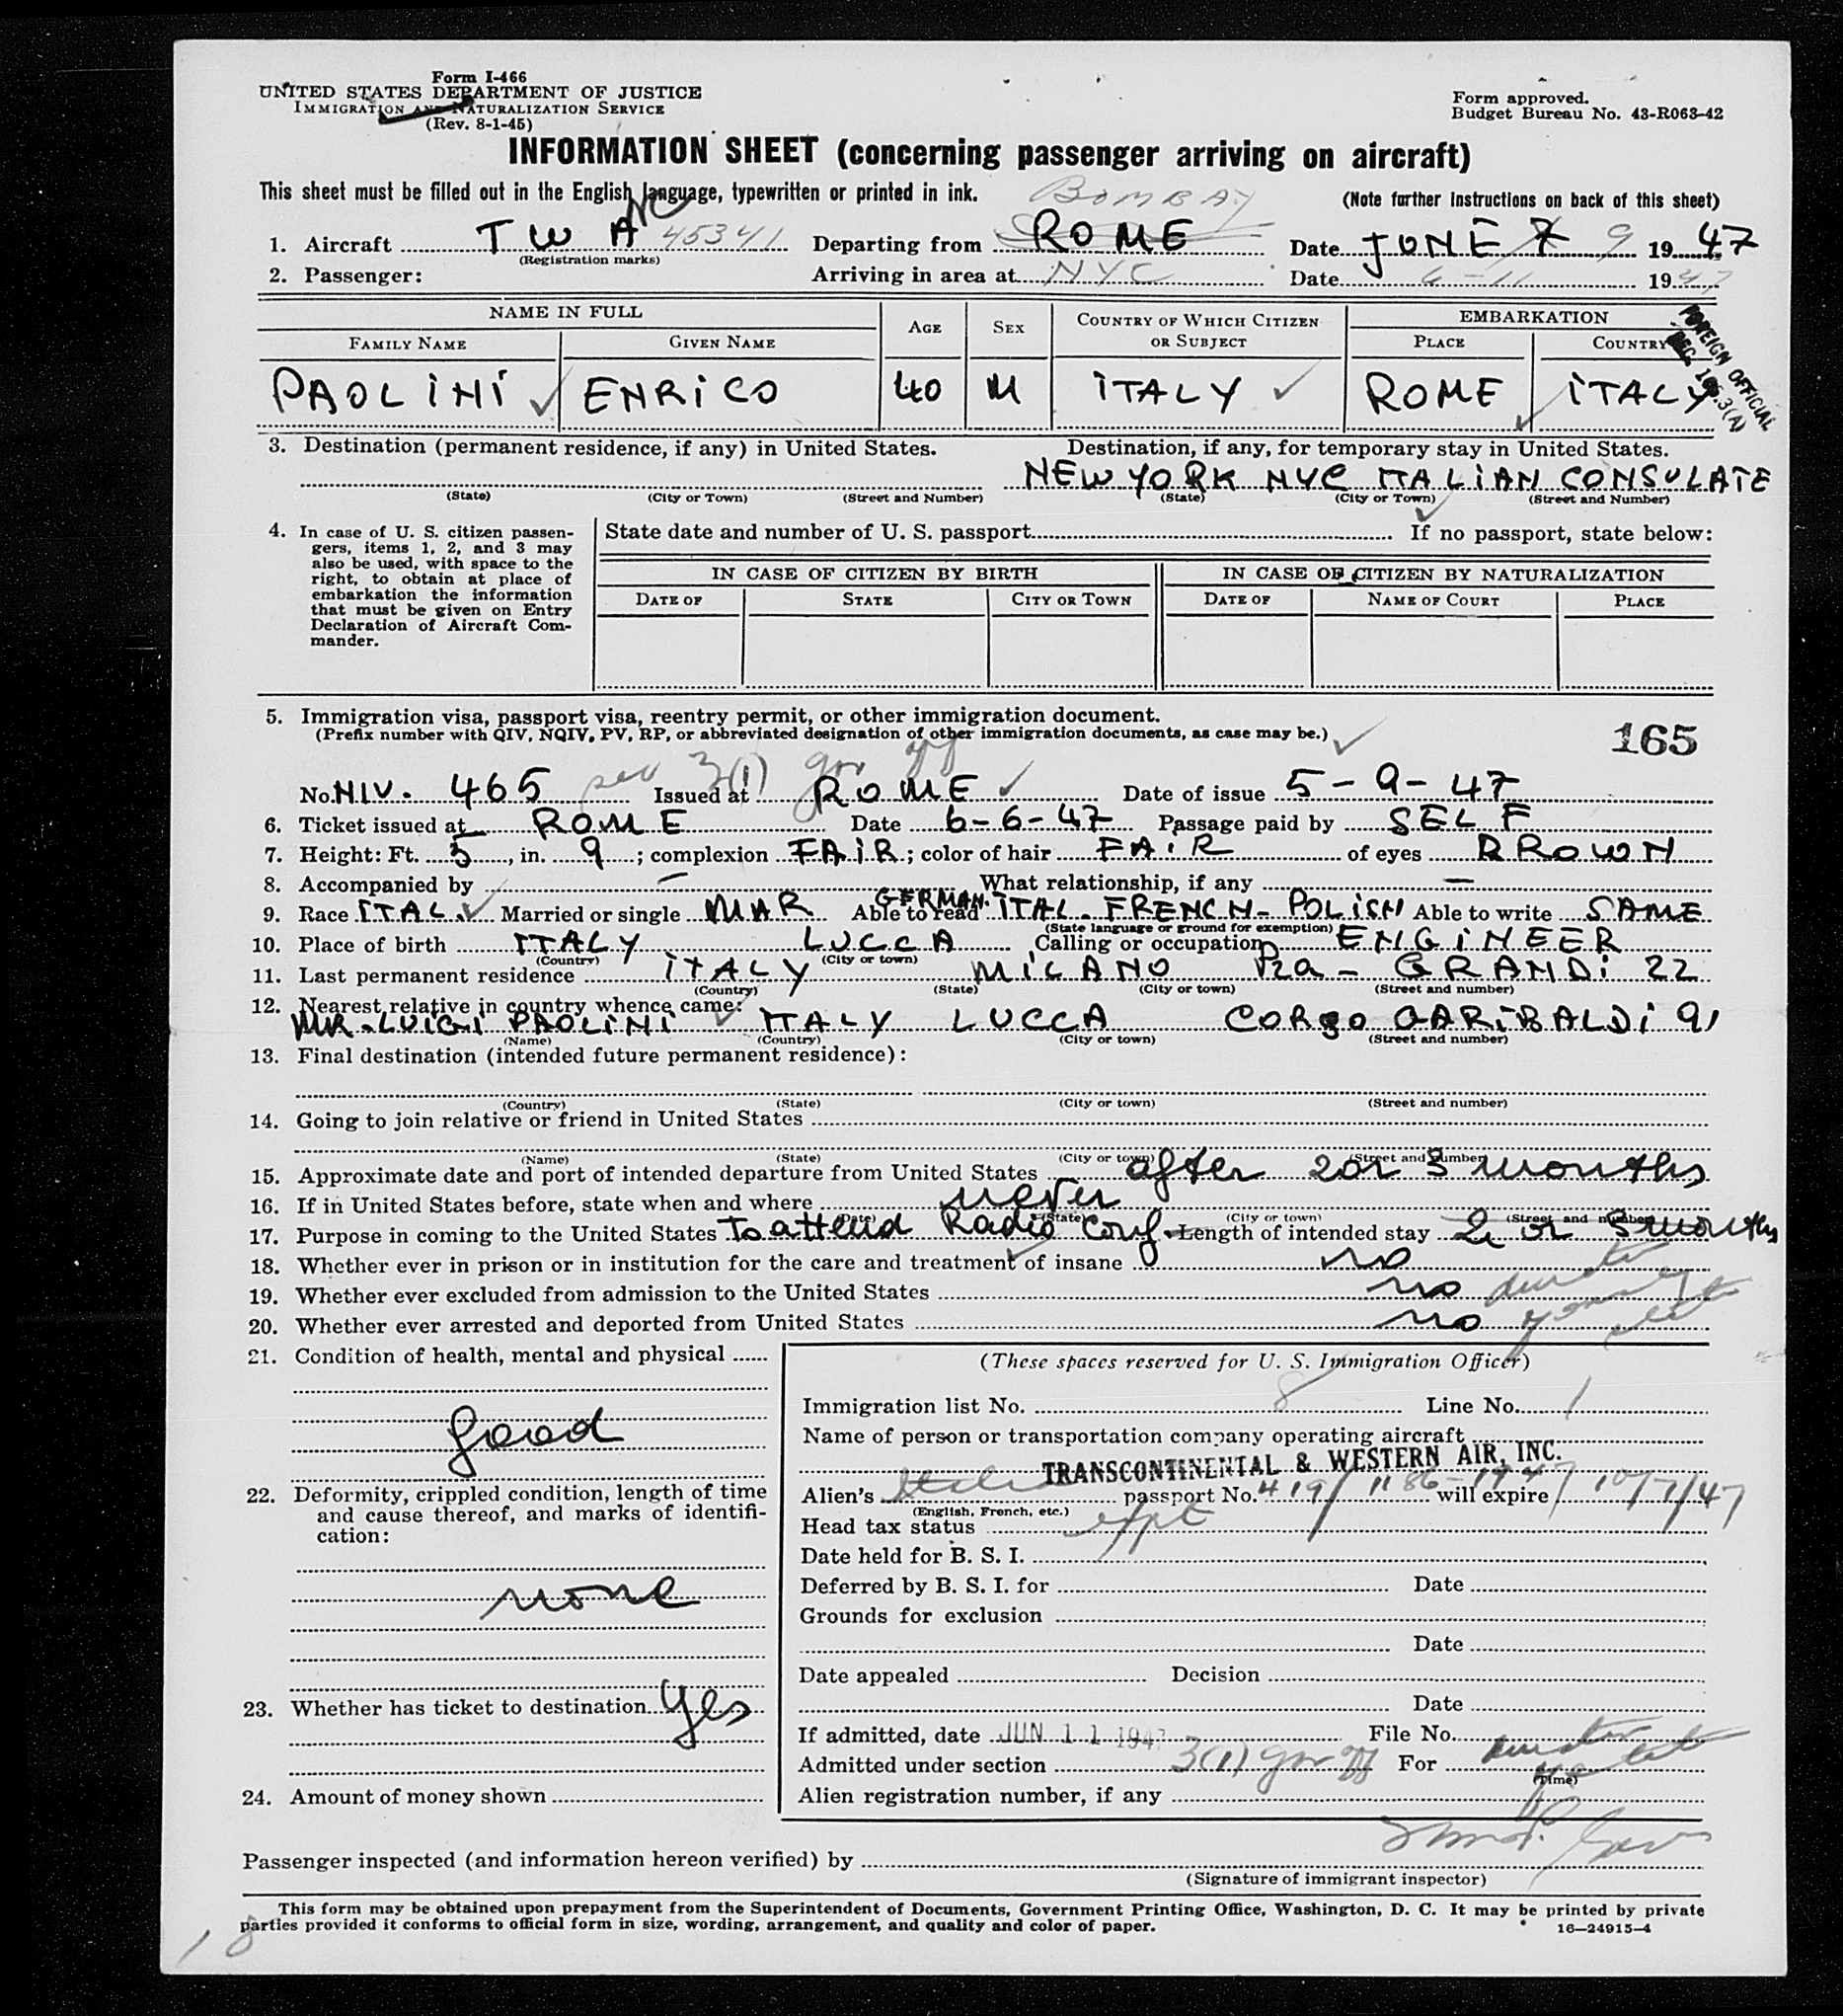 Form I-466
UNITED STATES DEPARTMENT OF JUSTICE
IMMIGRATION AND NATURALIZATION SERVICE
(Rev. 8-1-45)
Form approved.
Budget Bureau No. 43-R063-42
INFORMATION SHEET (concerning passenger arriving on aircraft)
This sheet must be filled out in the English language, typewritten or printed in ink. (Note further instructions on back of this sheet)
BOMBAY
1. Aircraft TWA NC 45341 Departing from ROME Date JUNE 7 9 1947
(Registration marks)
2. Passenger: Arriving in area at NYC Date 6-11 1947
NAME IN FULL AGE SEX COUNTRY OF WHICH CITIZEN OR SUBJECT EMBARKATION
FAMILY NAME GIVEN NAME PLACE COUNTRY
PAOLINI ENRICO 40 M ITALY ROME ITALY
FOREIGN OFFICIAL
3. Destination (permanent residence, if any) in United States. Destination, if any, for temporary stay in United States.
NEW YORK NYC ITALIAN CONSULATE
(State) (City or Town) (Street and Number) (State) (City or Town) (Street and Number)
4. In case of U. S. citizen passengers, items 1, 2, and 3 may also be used, with space to the right, to obtain at place of embarkation the information that must be given on Entry Declaration of Aircraft Commander.
State date and number of U. S. passport If no passport, state below:
IN CASE OF CITIZEN BY BIRTH IN CASE OF CITIZEN BY NATURALIZATION
DATE OF STATE CITY OR TOWN DATE OF NAME OF COURT PLACE
5. Immigration visa, passport visa, reentry permit, or other immigration document.
(Prefix number with QIV, NQIV, PV, RP, or abbreviated designation of other immigration documents, as case may be.)
165
sec 3(1) gov off
No. NIV. 465 Issued at ROME Date of issue 5-9-47
6. Ticket issued at ROME Date 6-6-47 Passage paid by SELF
7. Height: Ft. 5, in. 9; complexion FAIR; color of hair FAIR of eyes BROWN
8. Accompanied by — What relationship, if any —
9. Race ITAL. Married or single MAR Able to read GERMAN. ITAL. FRENCH-POLISH Able to write SAME
(State language or ground for exemption)
10. Place of birth ITALY LUCCA Calling or occupation ENGINEER
(Country) (City or town)
11. Last permanent residence ITALY MILANO Pza - GRANDI 22
(Country) (State) (City or town) (Street and number)
12. Nearest relative in country whence came:
MR. LUIGI PAOLINI ITALY LUCCA CORSO GARIBALDI 91
(Name) (Country) (City or town) (Street and number)
13. Final destination (intended future permanent residence):
(Country) (State) (City or town) (Street and number)
14. Going to join relative or friend in United States
(Name) (State) (City or town) (Street and number)
15. Approximate date and port of intended departure from United States after 2 or 3 months
16. If in United States before, state when and where never
(Date) (State) (City or town) (Street and number)
17. Purpose in coming to the United States To attend Radio Conf. Length of intended stay 2 or 3 months
18. Whether ever in prison or in institution for the care and treatment of insane no
19. Whether ever excluded from admission to the United States no
20. Whether ever arrested and deported from United States no
21. Condition of health, mental and physical
good
22. Deformity, crippled condition, length of time and cause thereof, and marks of identification:
none
23. Whether has ticket to destination yes
24. Amount of money shown
(These spaces reserved for U. S. Immigration Officer)
Immigration list No. 8 Line No. 1
Name of person or transportation company operating aircraft
TRANSCONTINENTAL & WESTERN AIR, INC.
Alien's passport No. will expire 10/7/47
(English, French, etc.)
Head tax status expt
Date held for B. S. I.
Deferred by B. S. I. for Date
Grounds for exclusion
Date
Date appealed Decision
Date
If admitted, date JUN 11 1947 File No.
Admitted under section 3(1) gov off For
(Time)
Alien registration number, if any
Passenger inspected (and information hereon verified) by
(Signature of immigrant inspector)
This form may be obtained upon prepayment from the Superintendent of Documents, Government Printing Office, Washington, D. C. It may be printed by private
parties provided it conforms to official form in size, wording, arrangement, and quality and color of paper. 16—24915-4
1 8